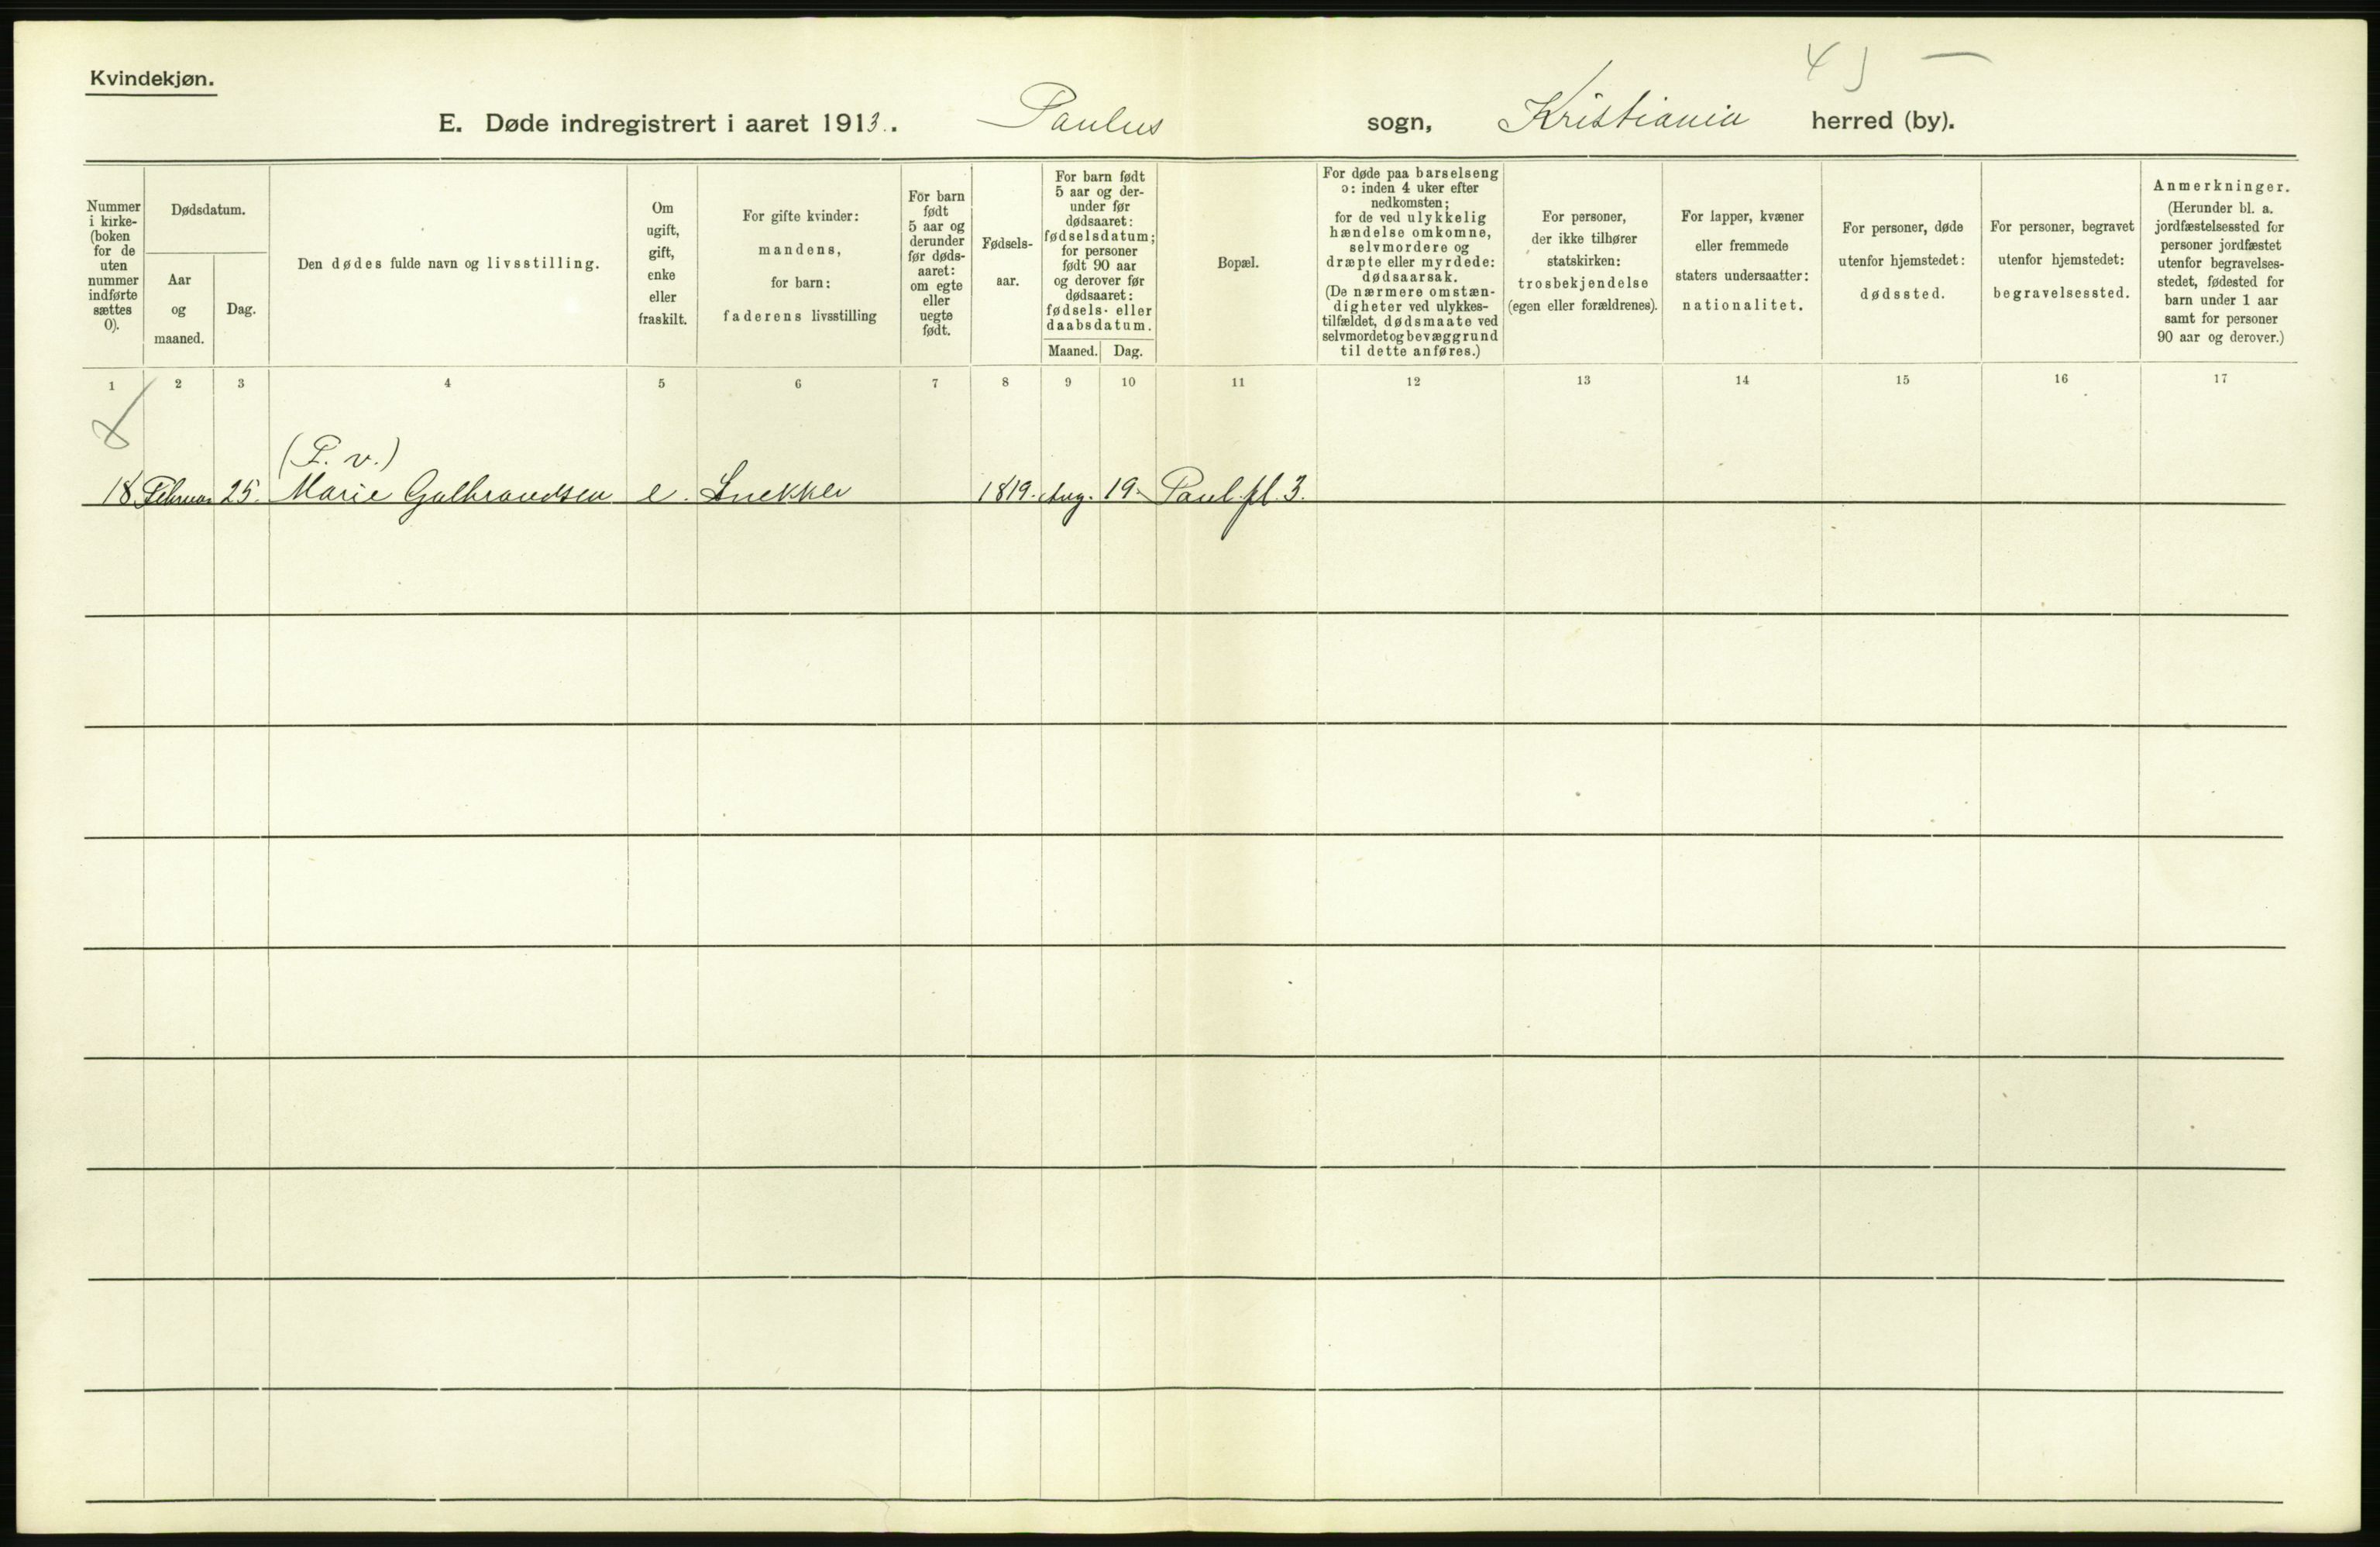 Kvindekjøn.
4)
E. Døde indregistrert i aaret 1913. Paulus sogn, Kristiania herred (by).
Nummer i kirke- (boken for de uten nummer indførte sættes 0).
Dødsdatum.
Aar og maaned.
Dag.
Den dødes fulde navn og livsstilling.
Om ugift, gift, enke eller fraskilt.
For gifte kvinder: mandens, for barn: faderens livsstilling
For barn født 5 aar og derunder før døds- aaret: om egte eller uegte født.
Fødsels- aar.
For barn født 5 aar og der- under før dødsaaret: fødselsdatum; for personer født 90 aar og derover før dødsaaret: fødsels- eller daabsdatum.
Maaned. Dag.
Bopæl.
For døde paa barselseng ɔ: inden 4 uker efter nedkomsten; for de ved ulykkelig hændelse omkomne, selvmordere og dræpte eller myrdede: dødsaarsak. (De nærmere omstæn- digheter ved ulykkes- tilfældet, dødsmaate ved selvmordet og bevæggrund til dette anføres.)
For personer, der ikke tilhører statskirken: trosbekjendelse (egen eller forældrenes).
For lapper, kvæner eller fremmede staters undersaatter: nationalitet.
For personer, døde utenfor hjemstedet: dødssted.
For personer, begravet utenfor hjemstedet: begravelsessted.
Anmerkninger. (Herunder bl. a. jordfæstelsessted for personer jordfæstet utenfor begravelses- stedet, fødested for barn under 1 aar samt for personer 90 aar og derover.)
1 2 3 4 5 6 7 8 9 10 11 12 13 14 15 16 17
(P. v.)
18 Februar 25. Marie Gulbrandsen e. Snekker 1819. Aug. 19. Paul. pl. 3.